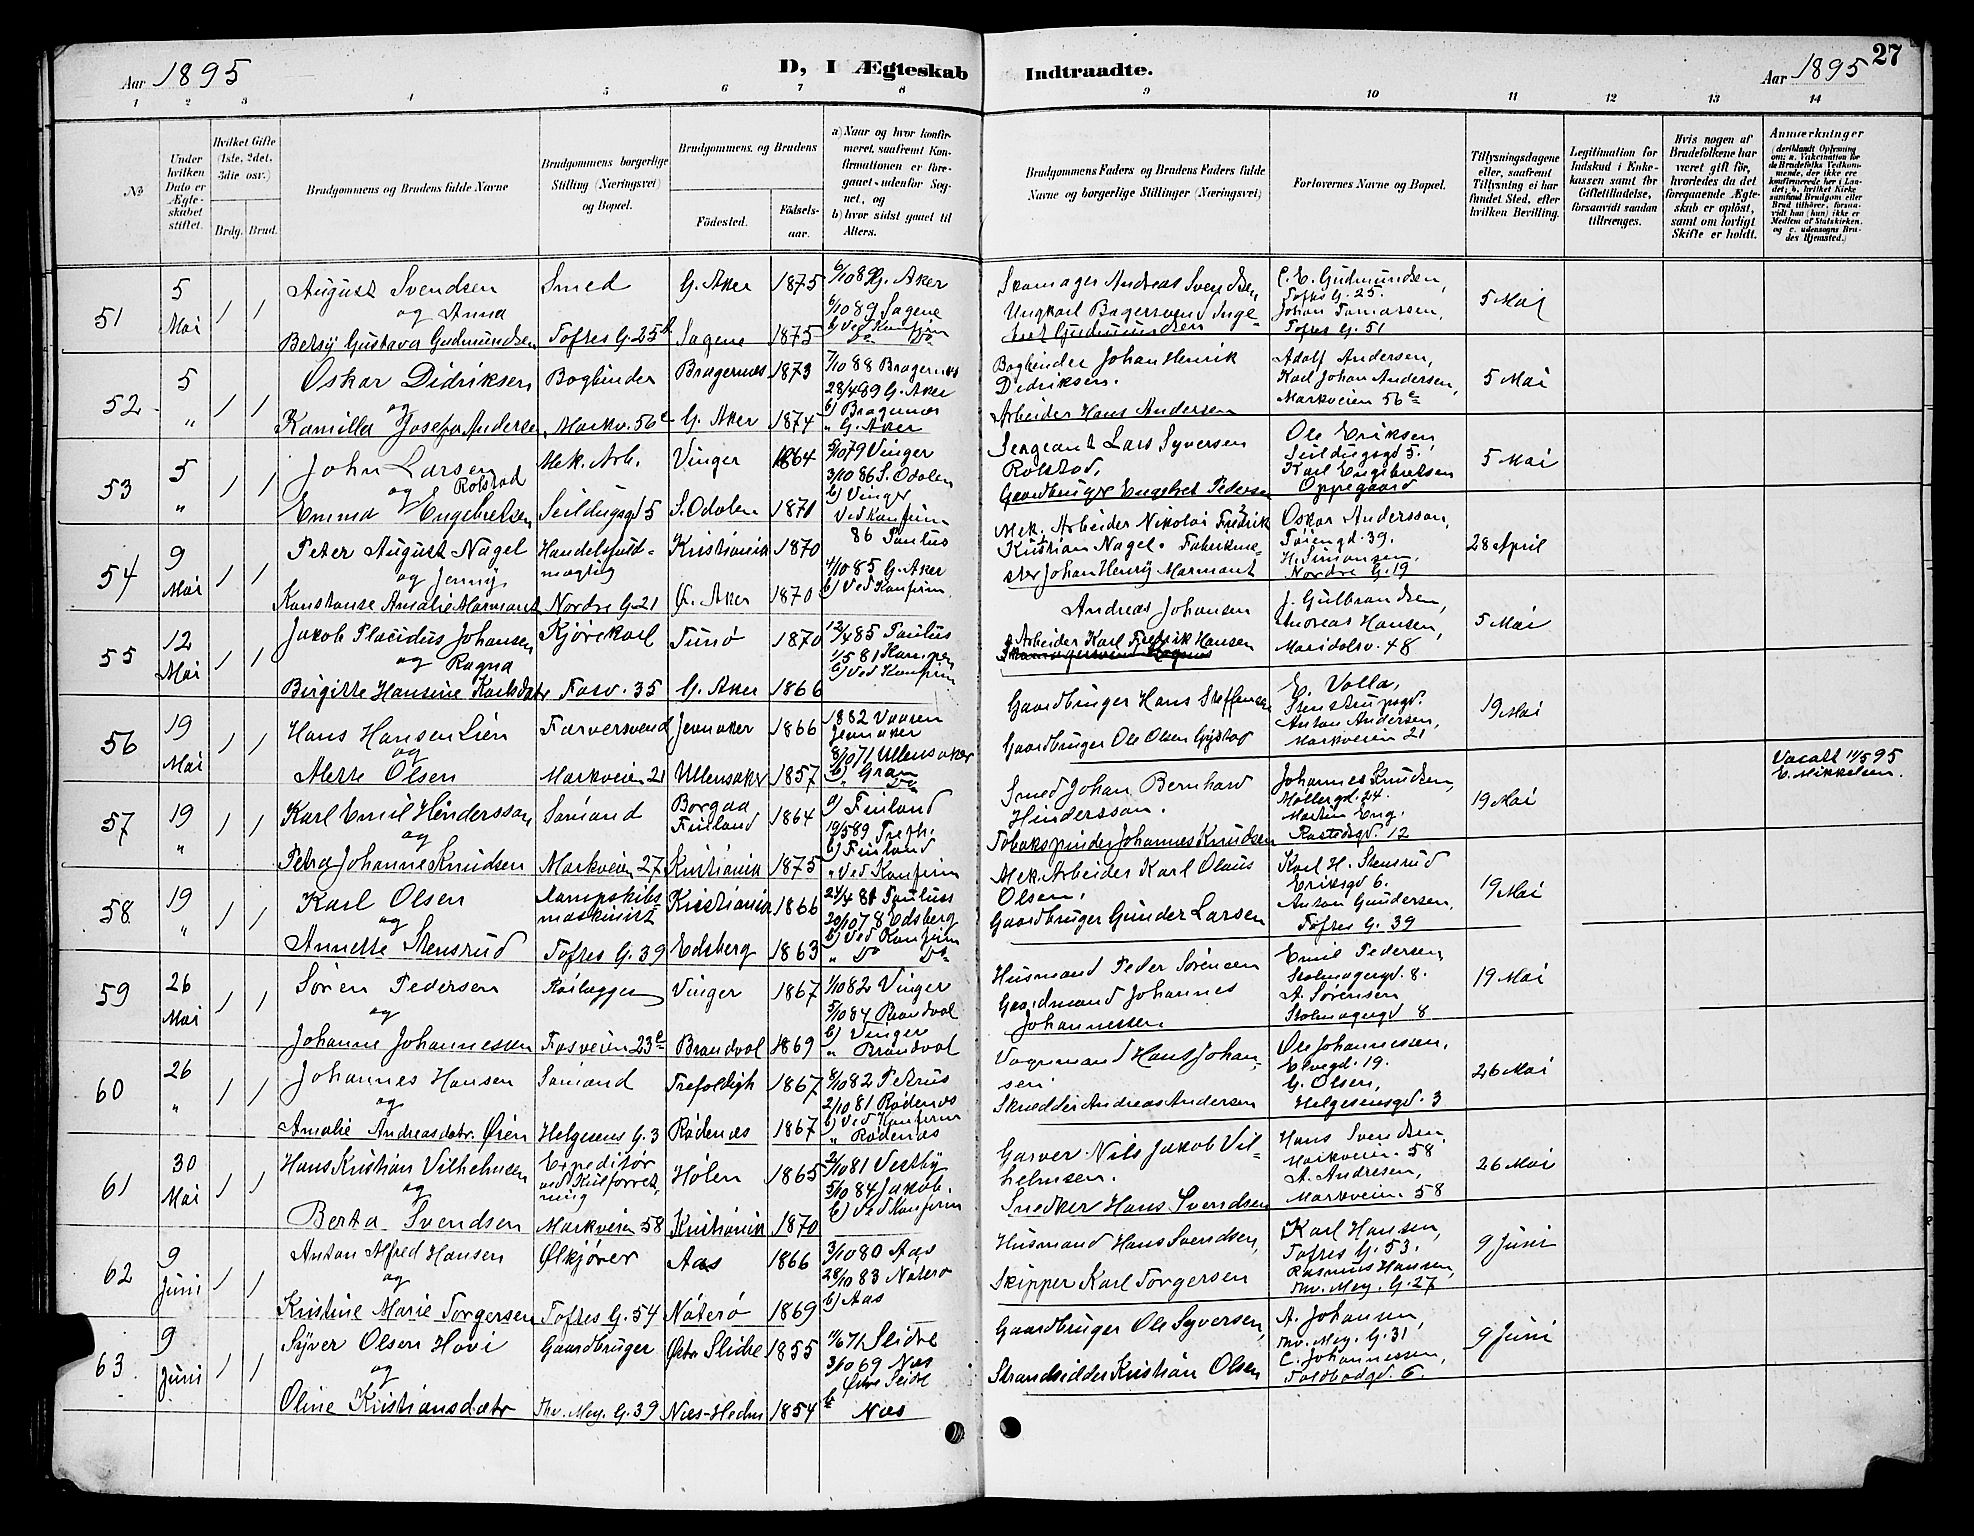 Aar 1895
D, I Ægteskab
1 2 3 4 5 6 7 8
№
Under hvilken Dato er Ægteskabet stiftet.
Hvilket Gifte (1ste, 2det, 3die osv.)
Brdg. Brud.
Brudgommens og Brudens fulde Navne
Brudgommens borgerlige Stilling (Næringsvei) og Bopæl.
Brudgommens og Brudens
Födested. Födselsaar.
a) Naar og hvor konfirmeret, saafremt Konfirmationen er foregaaet udenfor Sognet, og
b) hvor sidst gaaet til Alters.
51 5 Mai 1 1
August Svendsen Smed G. Aker 1875 G. Aker
og Anna 6/10 89 Sagene
Betsy Gustava Gudmundsen Toftes G. 25 Sagene 1875 b) Ved Konfirm
52 5 " 1 1
Oskar Didriksen Bogbinder Bragernæs 1873 7/10 88 Bragernæs
og G. Aker
b) Bragernæs
Kamilla Josefa Andersen Markv. 56 G. Aker 1874 " G. Aker
53 5 " 1 1
John Larsen Rolstad Mek. Arb. Vinger 1864 5/10 79 Vinger
og 3/10 86 S. Odalen
b) Vinger
Emma Engebretsen Seildugsgd 5 S. Odalen 1871 Ved Konfirm
54 9 Mai 1 1
Peter August Nagel Handelsfuldmægtig Kristiania 1870 86 Paulus
og Jenny 4/10 85 G. Aker
Konstanse Amalie Marmont Nordre G. 21 G. Aker 1870 b) Ved Konfirm.
55 12 Mai 1 1
Jakob Placidus Johansen Kjørekarl 1870 12/4 85 Paulus
og Ragna
b) Ved Konfirm
Birgitte Hansine Karlsdatr Fosv. 35 G. Aker 1866
56 19 Mai 1 1
Hans Hansen Lien Farversvend Jevnaker 1866 1882
og Jevnaker
8/10 71 Ullensaker
Mette Olsen Markveien 21 Ullensaker 1857 b) Gran
57 19 " 1 1
Karl Emil Hindersson Sømand Borgaa Finland 1864 a) Finland
og 19/5 89 Trefh.
b) Finland
Petra Johanne Knudsen Markveien 27 Kristiania 1875 " Ved Konfirm
58 19 " 1 1
Karl Olsen Dampskibsmaskinist Kristiania 1866 24/4 81 Paulus
og 20/10 78 Edsberg
b) Ved Konfirm
Annette Stensrud Toftes G. 39 Edsberg 1863 " Do Do
59 26 Mai 1 1
Søren Pedersen Vinger 1867 1/10 82 Vinger
og 5/10 84 Brandval
b) Vinger
Johanne Johannessen Fosveien 23 Brandval 1869 " Brandval
60 26 " 1 1
Johannes Hansen Sømand Trefoldigh 1867 8/10 82 Petrus
og 2/10 81 Rødenæs
b) Ved Konfirm
Amalie Andreasdatr. Øien Helgesens G. 3 Rødenæs 1867 " Rødenæs
61 30 Mai 1 1
Hans Kristian Vilhelmsen Expeditør ved Kulforretning Hølen 1865 2/10 81 Vestby
og 5/10 84 Jakob.
b) Ved Konfirm
Berta Svendsen Markveien 58 Kristiania 1870
62 9 Juni 1 1
Anton Alfred Hansen Ølkjører Aas 1866 3/10 80 Aas
og 28/10 83 Nøterø
b) Aas
Kristine Marie Torgersen Toftes G. 54 Nøterø 1869
63 9 Juni 1 1
Syver Olsen Hovi Gaardbruger Østr. Slidre 1855 71 Slidre
og 3/10 69 Næs
Oline Kristiansdatr Thv. Mey. G. 39 Næs-Hedm 1854 b Næs
Indtraadte.
Aar 1895 27
9 10 11 12 13 14
Brudgommens Faders og Brudens Faders fulde Navne og borgerlige Stillinger (Næringsvei)
Forlovernes Navne og Bopæl.
Tillysningsdagene eller, saafremt Tillysning ei har fundet Sted, efter hvilken Bevilling.
Legitimation for Indskud i Enkekassen samt for Giftetilladelse, forsaavidt saadan tiltrænges.
Hvis nogen af Brudefolkene har været gift før, hvorledes da det foregaaende Ægteskab er opløst, samt om lovligt Skifte er holdt.
Anmærkninger (deriblandt Oplysning om: a. Vakcination for de Brudefolks Vedkommende, der ikke ere konfirmerede her i Landet; b. hvilket Kirkesamfund Brudgom eller Brud tilhører, forsaavidt han (hun) ikke er Medlem af Statskirken, og c. udensogns Brudes Hjemsted.)
Skomager Andreas Svendsen, C. E. Gudmundsen,
Toftes G. 25.
Ungkarl Bagersvend Inge- Johan Tomassen, 5 Mai
Toftes G. 51
Bogbinder Johan Henrik Adolf Andersen,
Didriksen. Karl Johan Andersen, 5 Mai
Arbeider Hans Andersen Markveien 56
Sergeant Lars Syversen Ole Eriksen,
Rolstad, Seildugsgd 5. 5 Mai
Karl Engebretsen
Gaardbruger Engebret Pedersen Oppegaard
Mek. Arbeider Nikolai Fredrik Oskar Andersson,
Kristian Nagel. Fabrikme- Føiengd. 39. 28 April
H. Simonsen,
ster Johan Henry Marmont Nordre G. 19
Andreas Johansen J. Gulbrandsen,
Arbeider Karl Fredrik Hansen Andreas Hansen, 5 Mai
Maridalsv. 48
Gaardbruger Hans Steffensen E. Volla,
Stenstrupsgd. 19 Mai
Anton Andersen,
Gaardbruger Ole Olsen Markveien 21
Smed Johan Bernhard Johannes Knudsen,
Hindersson. Møllergd. 24. 19 Mai Vacatt 11/5 95
Martin Eng. E. Mikkelsen.
Tobakspinder Johannes Knudsen 12
Mek. Arbeider Karl Olaus Karl H. Stensrud
Olsen, Eriksgd 6. 19 Mai
Gaardbruger Gunder Larsen Anton Gundersen,
Toftes G. 39
Husmand Peder Sørensen Emil Pedersen,
Skolmagergd. 8. 19 Mai
Gaardmand Johannes A. Sørensen
Johannessen. Skolmagergd 8
Vognmand Hans Johan- Ole Johannessen,
sen. Elvegd. 19. 26 Mai
G. Olsen,
Skrædder Andreas Andersen Helgesensgd. 3
Garver Nils Jakob Vil- Hans Svendsen,
helmsen. Markveien 58 26 Mai
A. Andresen,
Snedker Hans Svendsen Markveien 58
Husmand Hans Svendsen, Karl Hansen,
Toftes G. 53. 9 Juni
Rasmus Hansen,
Skipper Karl Torgersen Thv. Mey. G. 27
Gaardbruger Ole Syversen, A. Johansen,
Thv. Mey. G. 31 9 Juni
C. Johannessen,
Strandsidder Kristian Olsen Toldbodgd. 6.